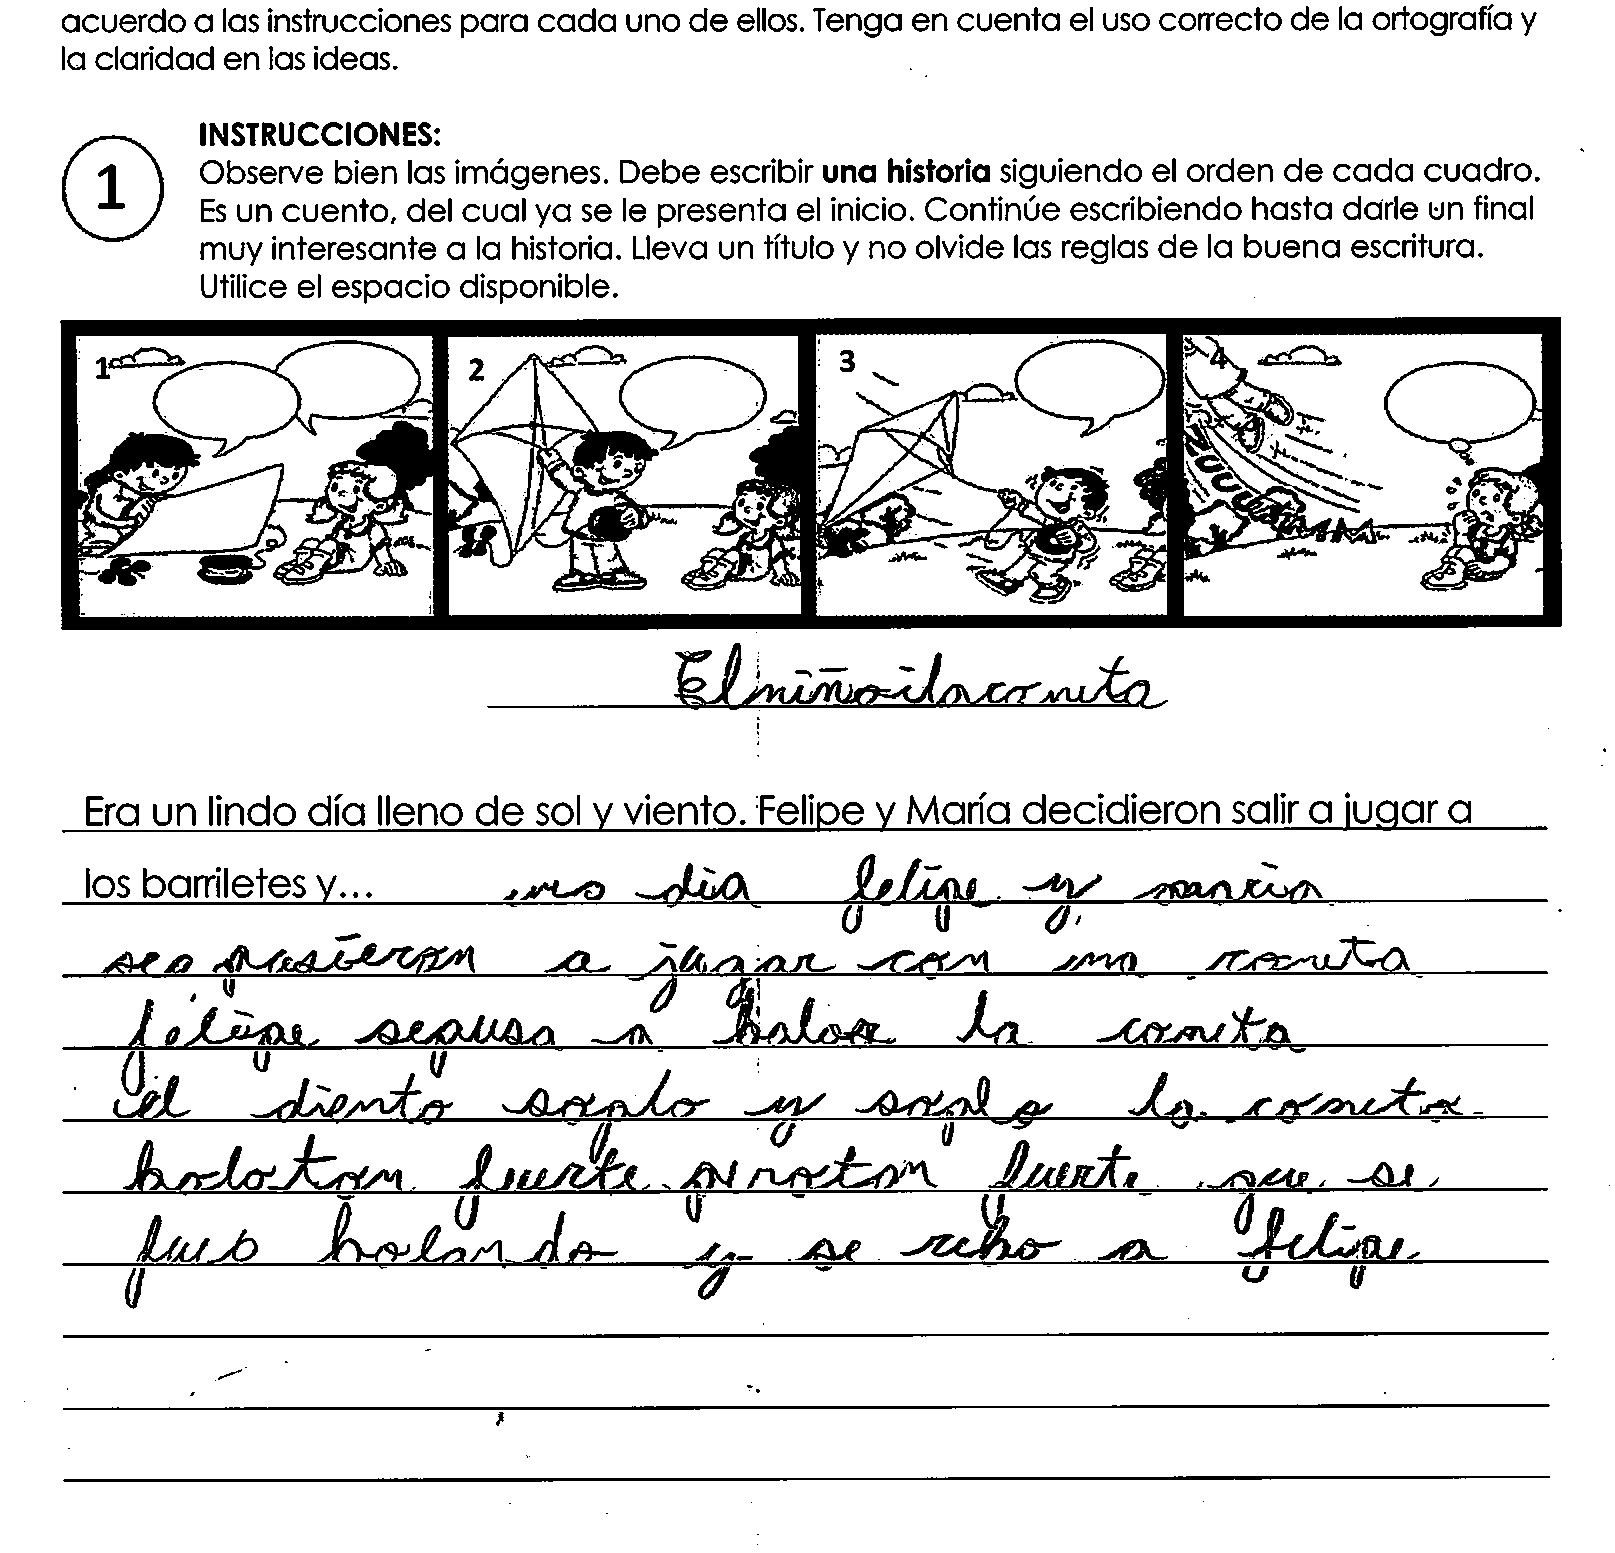 acuerdo a las instrucciones para cada uno de ellos. Tenga en cuenta el uso correcto de la ortografía y
la claridad en las ideas.
1
INSTRUCCIONES:
Observe bien las imágenes. Debe escribir una historia siguiendo el orden de cada cuadro.
Es un cuento, del cual ya se le presenta el inicio. Continúe escribiendo hasta darle un final
muy interesante a la historia. Lleva un título y no olvide las reglas de la buena escritura.
Utilice el espacio disponible.
1 2 3 4
ZUUUUMMM
El niño i la cometa
Era un lindo día lleno de sol y viento. Felipe y María decidieron salir a jugar a
los barriletes y... dia felipe y maria
pusieron a jugar con una cometa
felipe sepuso a bolar la cometa
el diento soplo y soplo la cometa
bolotan fuerte fuerte que se
fue bolando y se rebo a felipe